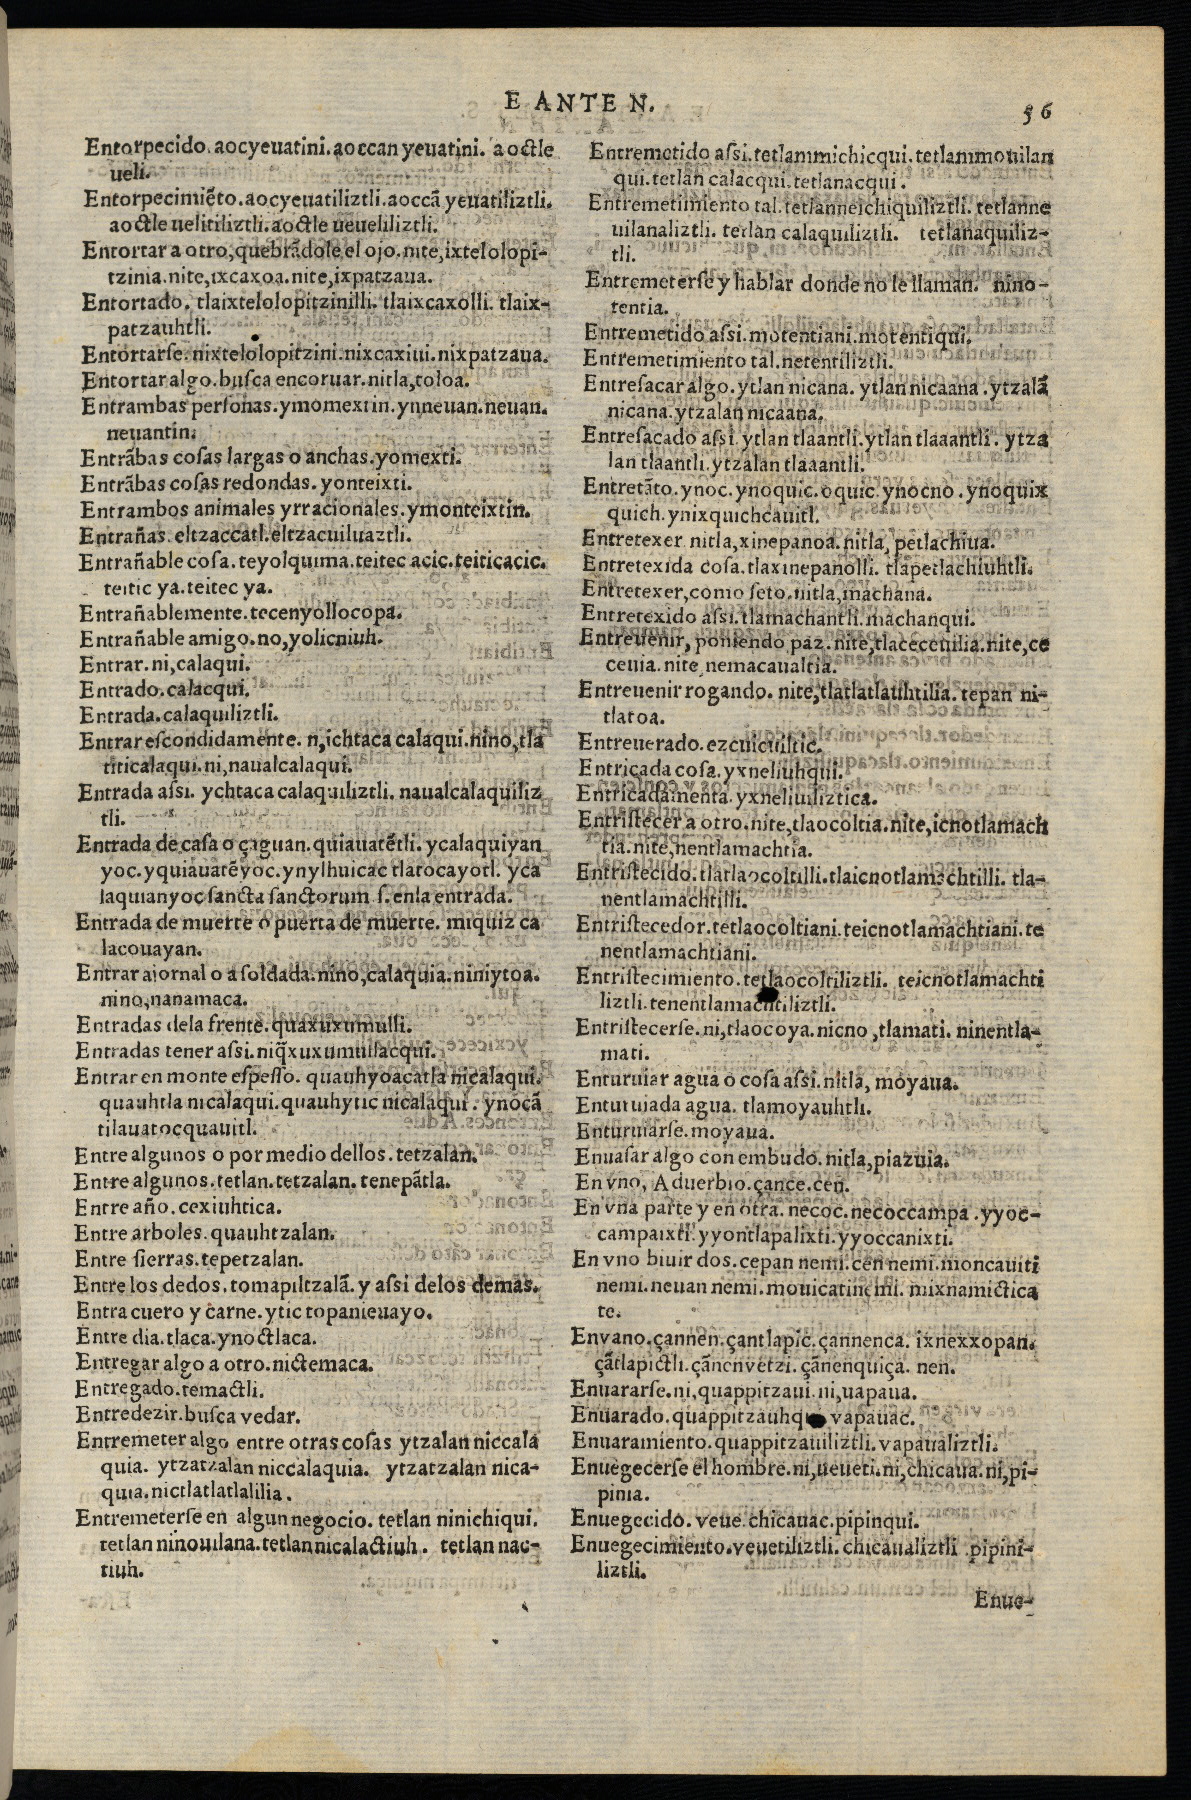 E ANTE N.
56
Entorpecido. aocyeuatini. aoccan yeuatini. aoctle
ueli.
Entorpecimiẽto. aocyeuatiliztli. aoccã yeuatiliztli.
aoctle uelitiliztli. aoctle ueueliliztli.
Entortar a otro, quebrãdole el ojo. nite, ixtelolopi-
tzinia. nite, ixcaxoa. nite, ixpatzaua.
Entortado. tlaixtelolopitzinilli. tlaixcaxolli. tlaix-
patzauhtli.
Entortarse. nixtelolopitzini. nixcaxiui. nixpatzaua.
Entortar algo. busca encoruar. nitla, toloa.
Entrambas personas. ymomextin. ynneuan. neuan.
neuantin.
Entrãbas cosas largas o anchas. yomexti.
Entrãbas cosas redondas. yonteixti.
Entrambos animales yrracionales. ymonteixtin.
Entrañas. eltzaccatl. eltzacuiluaztli.
Entrañable cosa. teyolquima. teitec acic. teiticacic.
teitic ya. teitec ya.
Entrañablemente. tecenyollocopa.
Entrañable amigo. no, yolicniuh.
Entrar. ni, calaqui.
Entrado. calacqui.
Entrada. calaquiliztli.
Entrar escondidamente. n, ichtaca calaqui. nino, tla
titicalaqui. ni, naualcalaqui.
Entrada assi. ychtaca calaquiliztli. naualcalaquiliz
tli.
Entrada de casa o çaguan. quiauatẽtli. ycalaquiyan
yoc. yquiauatẽyoc. ynylhuicac tlatocayotl. yca
laquianyoc sancta sanctorum s. enla entrada.
Entrada de muerte o puerta de muerte. miquiz ca
lacouayan.
Entrar a jornal o a soldada. nino, calaquia. niniytoa.
nino, nanamaca.
Entradas dela frente. quaxuxumulli.
Entradas tener assi. niq̃xuxumullacqui.
Entrar en monte espesso. quauhyoacatla nicalaqui.
quauhtla nicalaqui. quauhytic nicalaqui. ynocã
tilauatocquauitl.
Entre algunos o por medio dellos. tetzalan.
Entre algunos. tetlan. tetzalan. tenepãtla.
Entre año. cexiuhtica.
Entre arboles. quauhtzalan.
Entre sierras. tepetzalan.
Entre los dedos. tomapiltzalã. y assi delos demas.
Entra cuero y carne. ytic topanieuayo.
Entre dia. tlaca. ynoctlaca.
Entregar algo a otro. nictemaca.
Entregado. temactli.
Entredezir. busca vedar.
Entremeter algo entre otras cosas ytzalan niccala
quia. ytzatzalan niccalaquia. ytzatzalan nica-
quia. nictlatlatlalilia.
Entremeterse en algun negocio. tetlan ninichiqui.
tetlan ninouilana. tetlan nicalactiuh. tetlan nac-
tiuh.
Entremetido assi. tetlanmichicqui. tetlanmouilan
qui. tetlan calacqui. tetlanacqui.
Entremetimiento tal. tetlanneichiquiliztli. tetlanne
uilanaliztli. tetlan calaquiliztli. tetlanaquiliz-
tli.
Entremeterse y hablar donde no le llaman. nino-
tentia.
Entremetido assi. motentiani. motentiqui.
Entremetimiento tal. netentiliztli.
Entresacar algo. ytlan nicana. ytlan nicaana. ytzalã
nicana. ytzalan nicaana.
Entresacado assi. ytlan tlaantli. ytlan tlaaantli. ytza
lan tlaantli. ytzalan tlaaantli.
Entretãto. ynoc. ynoquic. oquic. ynocno. ynoquix
quich. ynixquichcauitl.
Entretexer. nitla, xinepanoa. nitla, petlachiua.
Entretexida cosa. tlaxinepanolli. tlapetlachiuhtli.
Entretexer, como seto. nitla, machana.
Entretexido assi. tlamachantli. machanqui.
Entreuenir, poniendo paz. nite, tlaceceuilia. nite, ce
ceuia. nite, nemacaualtia.
Entreuenir rogando. nite, tlatlatlauhtilia. tepan ni-
tlatoa.
Entreuerado. ezcuicuiltic.
Entricada cosa. yxneliuhqui.
Entricadamenta. yxneliuiliztica.
Entristecer a otro. nite, tlaocoltia. nite, icnotlamach
tia. nite, nentlamachtia.
Entristecido. tlatlaocoltilli. tlaicnotlamachtilli. tla-
nentlamachtilli.
Entristecedor. tetlaocoltiani. teicnotlamachtiani. te
nentlamachtiani.
Entristecimiento. tetlaocoltiliztli. teicnotlamachti
liztli. tenentlamachtiliztli.
Entristecerse. ni, tlaocoya. nicno, tlamati. ninentla-
mati.
Enturuiar agua o cosa assi. nitla, moyaua.
Enturuiada agua. tlamoyauhtli.
Enturuiarse. moyaua.
Enuasar algo con embudo. nitla, piazuia.
En vno, Aduerbio. çance. cen.
En vna parte y en otra. necoc. necoccampa. yyoc-
campaixti. yyontlapalixti. yyoccanixti.
En vno biuir dos. cepan nemi. cen nemi. moncauiti
nemi. neuan nemi. mouicatinemi. mixnamictica
te.
Envano. çannen. çantlapic. çannenca. ixnexxopan.
çãtlapictli. çãnenvetzi. çãnenquiça. nen.
Enuararse. ni, quappitzaui. ni, uapaua.
Enuarado. quappitzauhqui vapauac.
Enuaramiento. quappitzauiliztli. vapaualiztli.
Enuegecerse el hombre. ni, ueueti. ni, chicaua. ni, pi-
pinia.
Enuegecido. veue. chicauac. pipinqui.
Enuegecimiento. veuetiliztli. chicaualiztli pipini-
liztli.
Enue-